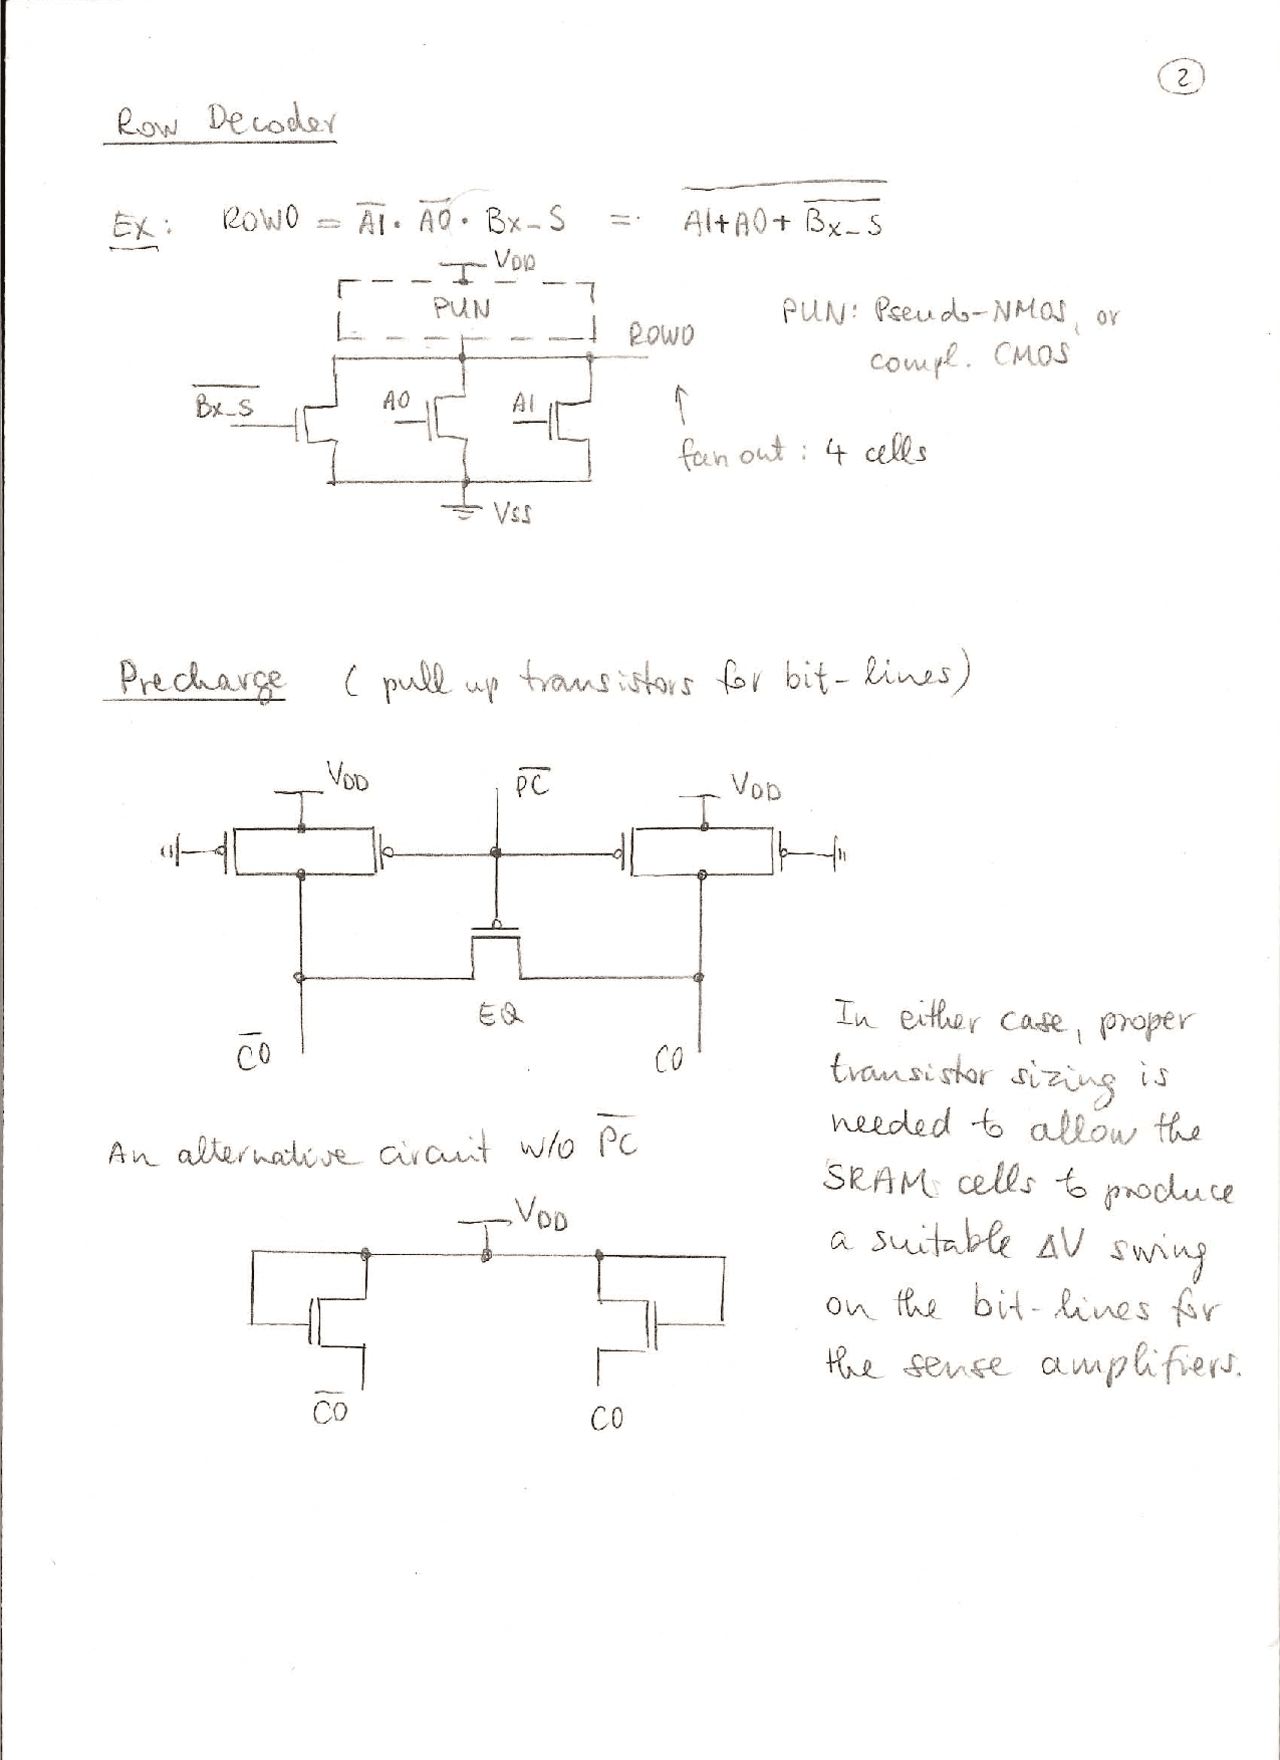 2
Row Decoder
Ex: ROW0 = A̅1̅ · A̅0̅ · Bx_S = \overline{A1+A0+\overline{Bx_S}}
VDD
PUN
ROW0
PUN: Pseudo-NMOS, or
compl. CMOS
\overline{Bx_S}
A0
A1
fan out : 4 cells
VSS
Precharge ( pull up transistors for bit-lines)
VDD
P̅C̅
VDD
EQ
C̅0̅
C0
In either case, proper
transistor sizing is
needed to allow the
SRAM cells to produce
a suitable ΔV swing
on the bit-lines for
the sense amplifiers.
An alternative circuit w/o P̅C̅
VDD
C̅0̅
C0